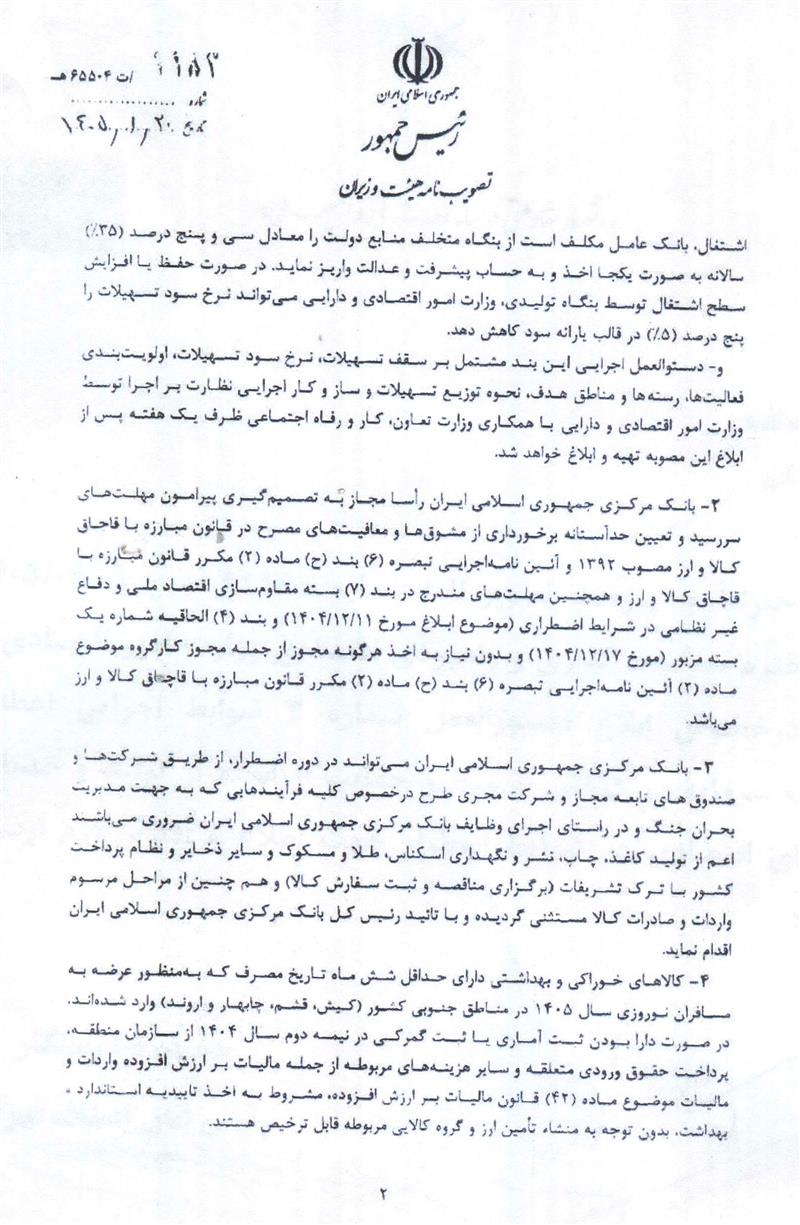 جمهوری اسلامی ایران
رئیس جمهور
تصویب نامه هیئت وزیران
/ت ۶۵۵۰۴ هـ
شماره
تاریخ ۱۴۰۵/۰۱/۲۰
اشتغال، بانک عامل مکلف است از بنگاه متخلف منابع دولت را معادل سی و پنج درصد (۳۵٪)
سالانه به صورت یکجا اخذ و به حساب پیشرفت و عدالت واریز نماید. در صورت حفظ یا افزایش
سطح اشتغال توسط بنگاه تولیدی، وزارت امور اقتصادی و دارایی می‌تواند نرخ سود تسهیلات را
پنج درصد (۵٪) در قالب یارانه سود کاهش دهد.
و- دستوالعمل اجرایی این بند مشتمل بر سقف تسهیلات، نرخ سود تسهیلات، اولویت‌بندی
فعالیت‌ها، رسته‌ها و مناطق هدف، نحوه توزیع تسهیلات و ساز و کار اجرایی نظارت بر اجرا توسط
وزارت امور اقتصادی و دارایی با همکاری وزارت تعاون، کار و رفاه اجتماعی ظرف یک هفته پس از
ابلاغ این مصوبه تهیه و ابلاغ خواهد شد.
۲- بانک مرکزی جمهوری اسلامی ایران رأسا مجاز به تصمیم‌گیری پیرامون مهلت‌های
سررسید و تعیین حدآستانه برخورداری از مشوق‌ها و معافیت‌های مصرح در قانون مبارزه با قاچاق
کالا و ارز مصوب ۱۳۹۲ و آئین نامه‌اجرایی تبصره (۶) بند (ح) ماده (۲) مکرر قانون مبارزه با
قاچاق کالا و ارز و همچنین مهلت‌های مندرج در بند (۷) بسته مقاوم‌سازی اقتصاد ملی و دفاع
غیر نظامی در شرایط اضطراری (موضوع ابلاغ مورخ ۱۴۰۴/۱۲/۱۱) و بند (۴) الحاقیه شماره یک
بسته مزبور (مورخ ۱۴۰۴/۱۲/۱۷) و بدون نیاز به اخذ هرگونه مجوز از جمله مجوز کارگروه موضوع
ماده (۲) آئین نامه‌اجرایی تبصره (۶) بند (ح) ماده (۲) مکرر قانون مبارزه با قاچاق کالا و ارز
می‌باشد.
۳- بانک مرکزی جمهوری اسلامی ایران می‌تواند در دوره اضطرار، از طریق شرکت‌ها و
صندوق های تابعه مجاز و شرکت مجری طرح درخصوص کلیه فرآیندهایی که به جهت مدیریت
بحران جنگ و در راستای اجرای وظایف بانک مرکزی جمهوری اسلامی ایران ضروری می‌باشند
اعم از تولید کاغذ، چاپ، نشر و نگهداری اسکناس، طلا و مسکوک و سایر ذخایر و نظام پرداخت
کشور با ترک تشریفات (برگزاری مناقصه و ثبت سفارش کالا) و هم چنین از مراحل مرسوم
واردات و صادرات کالا مستثنی گردیده و با تائید رئیس کل بانک مرکزی جمهوری اسلامی ایران
اقدام نماید.
۴- کالاهای خوراکی و بهداشتی دارای حداقل شش ماه تاریخ مصرف که به‌منظور عرضه به
مسافران نوروزی سال ۱۴۰۵ در مناطق جنوبی کشور (کیش، قشم، چابهار و اروند) وارد شده‌اند،
در صورت دارا بودن ثبت آماری یا ثبت گمرکی در نیمه دوم سال ۱۴۰۴ از سازمان منطقه،
پرداخت حقوق ورودی متعلقه و سایر هزینه‌های مربوطه از جمله مالیات بر ارزش افزوده واردات و
مالیات موضوع ماده (۴۲) قانون مالیات بر ارزش افزوده، مشروط به اخذ تاییدیه استاندارد و
بهداشت، بدون توجه به منشاء تأمین ارز و گروه کالایی مربوطه قابل ترخیص هستند.
۲